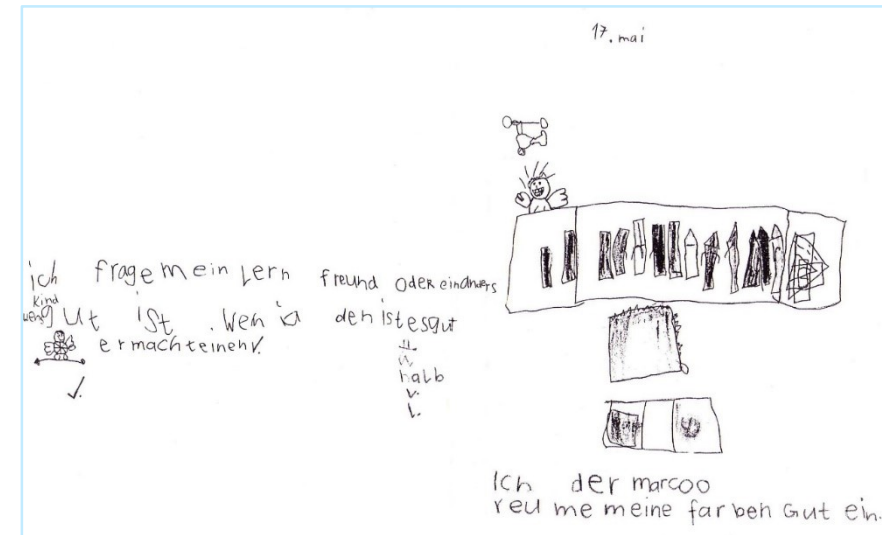 17. mai
ich frage mein lern freund oder ein anders
kind
wens gut ist . wen ia den ist es gut
er macht einen V.
halb
Ich der marcoo
reu me meine farben Gut ein.